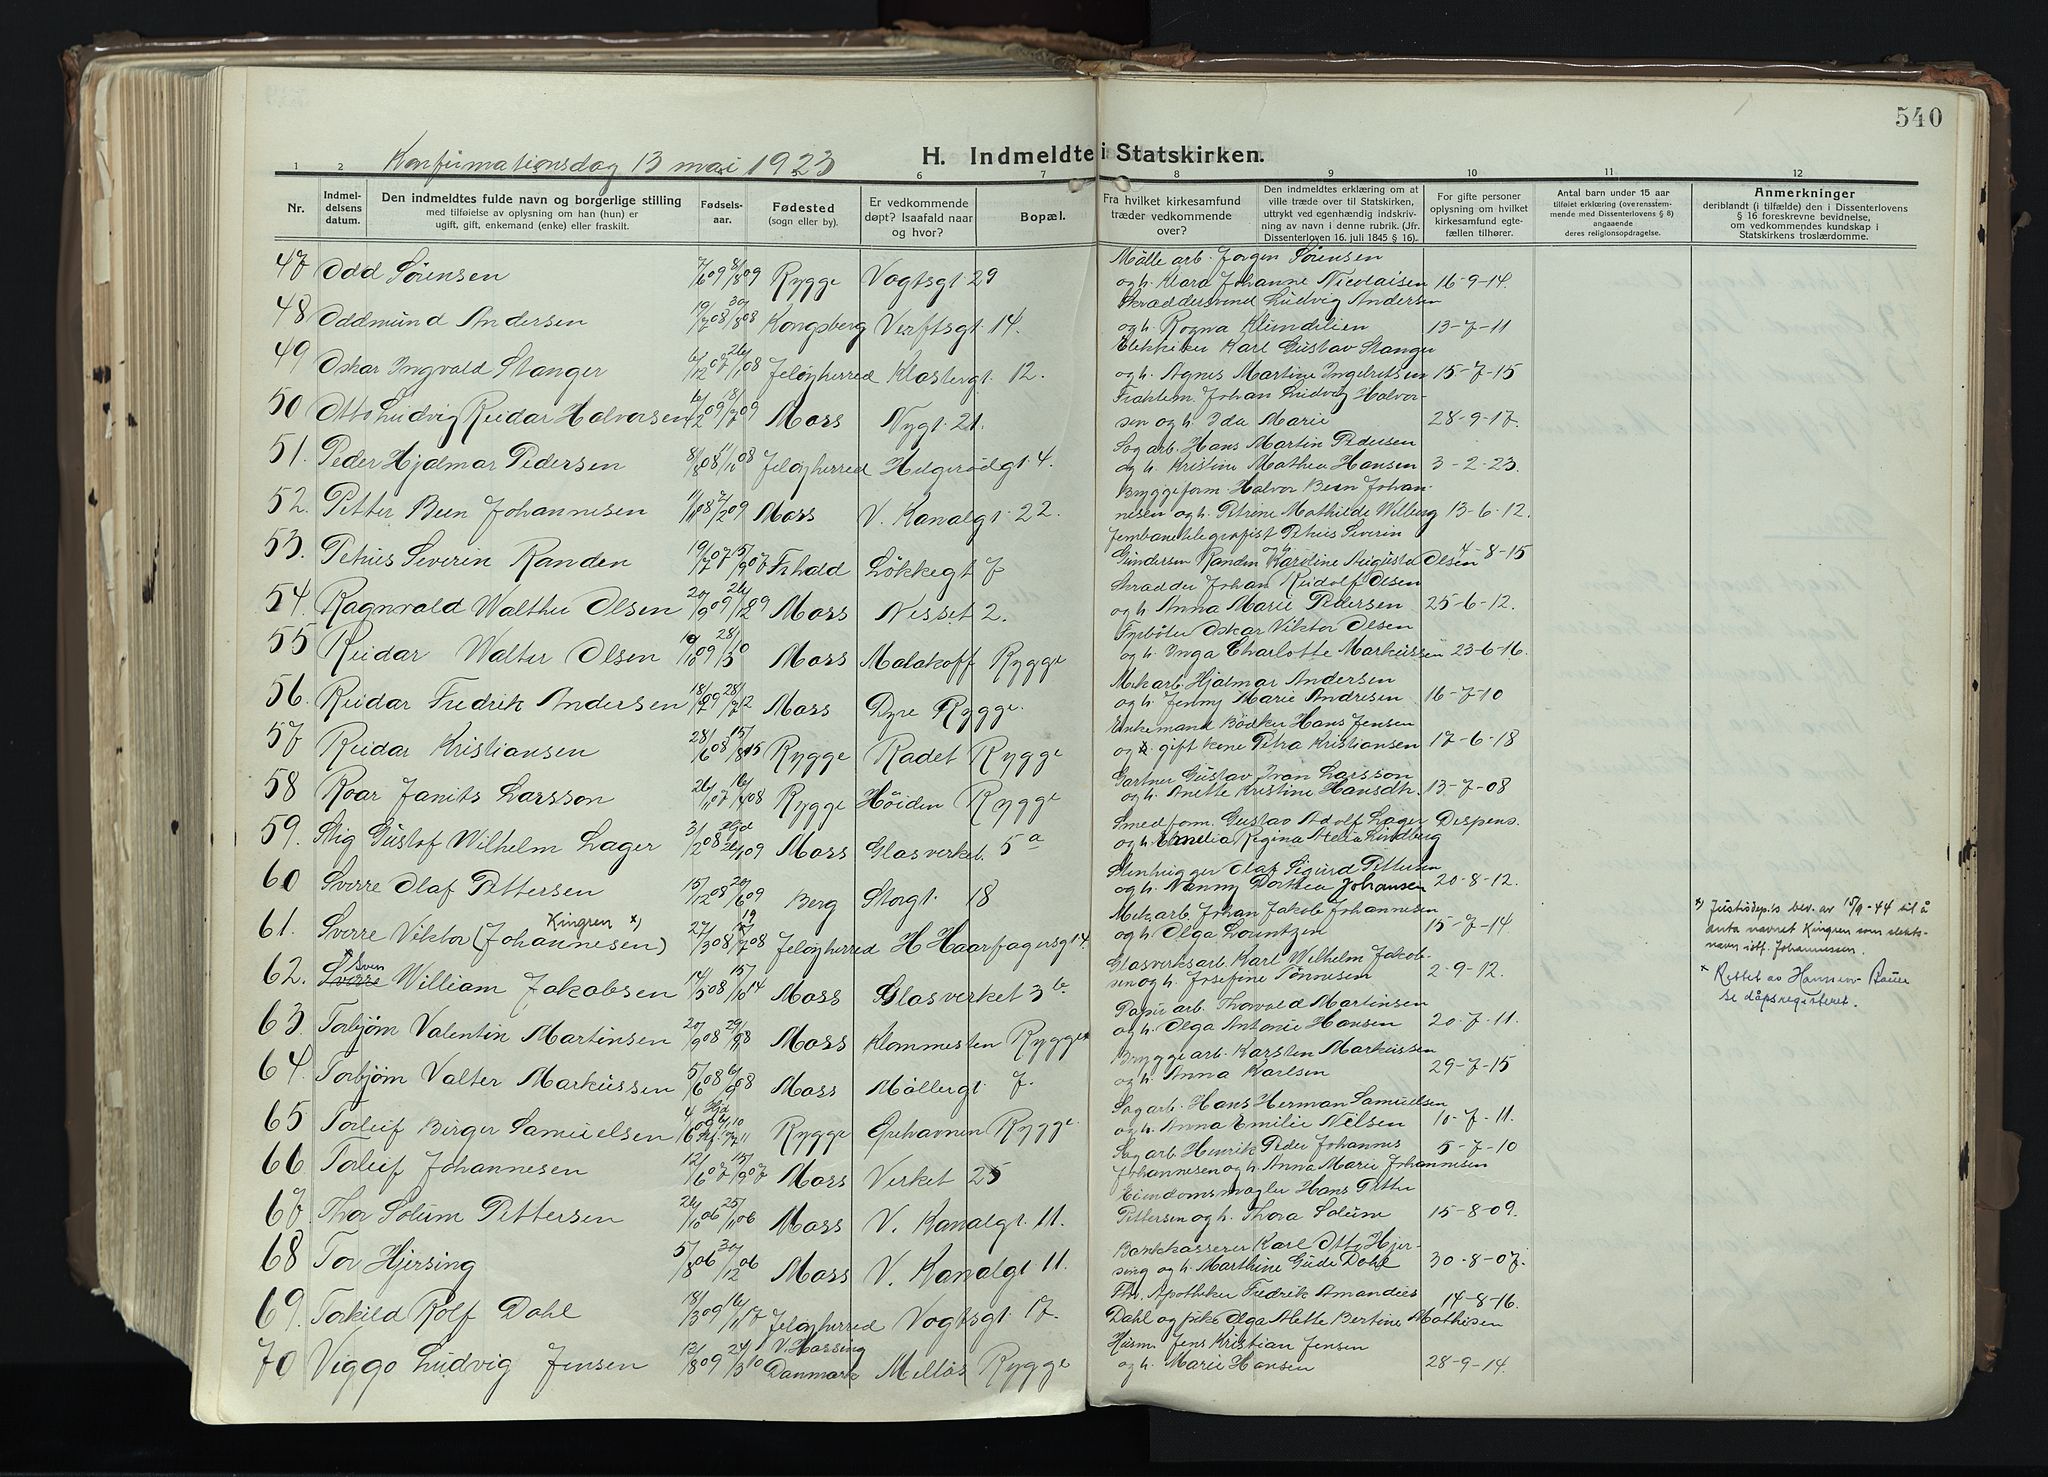 540
Konfirmationsdag 13 mai 1923
H. Indmeldte i Statskirken.
1 2 6 7 8 9 10 11 12
Nr.
Indmel-
delsens
datum.
Den indmeldtes fulde navn og borgerlige stilling
med tilføielse av oplysning om han (hun) er
ugift, gift, enkemand (enke) eller fraskilt.
Fødsels-
aar.
Fødested
(sogn eller by).
Er vedkommende
døpt? Isaafald naar
og hvor?
Bopæl.
Fra hvilket kirkesamfund
træder vedkommende
over?
Den indmeldtes erklæring om at
ville træde over til Statskirken,
uttrykt ved egenhændig indskriv-
ning av navn i denne rubrik. (Jfr.
Dissenterloven 16. juli 1845 § 16).
For gifte personer
oplysning om hvilket
kirkesamfund egte-
fællen tilhører.
Antal barn under 15 aar
tilføiet erklæring (overensstem-
mende med Dissenterlovens § 8)
angaaende
deres religionsopdragelse.
Anmerkninger
deriblandt (i tilfælde) den i Dissenterlovens
§ 16 foreskrevne bevidnelse,
om vedkommendes kundskap i
Statskirkens troslærdomme.
47 Odd Sørensen 7/6 09 8/8 09 Rygge Vogtsgt. 29
Mølle arb. Jørgen Sørensen
og h. Klara Johanne Nicolaisen 16-9-14.
48 Oddmund Andersen 19/7 08 30/8 08 Kongsberg Verftsgt 14.
Skræddersvend Ludvig Andersen
og h. Rogna Klundilien 13-7-11
49 Oskar Ingvald Stanger 6/12 07 26/1 08 Jeløyherred Klostergt. 12.
Elektriker Karl Gustav Stanger
og h. Agnes Martine Ingebretsen 15-7-15
50 Otto Ludvig Reidar Halvorsen 8/7 09 Moss Nygt. 21.
Johan Ludvig Halvor-
sen og h. Ida Marie 28-9-17.
51. Peder Hjalmar Pedersen 8/8 08 11/10 08 Jeløyherred Helgerødgt 4.
Sag arb. Hans Martin Pedersen
og h. Kristine Mathea Hansen 3-2-23.
52. Petter Been Johannesen 11/11 08 7/2 09 Moss V. Kanalgt. 22.
Bryggeform. Halvor Been Johan-
nesen og h. Petrine Mathilde Wilberg 13-6-12.
53. Petrus Severin Randen 19/7 07 15/9 07 Fr.hald Løkkegt 7
Jernbanetelegrafist Petrus Severin
Gundersen Randen og h. Karoline Augusta Olsen 4-8-15
54. Ragnvald Walther Olsen 20/9 09 26/12 09 Moss Nesset 2.
Skrædder Johan Rudolf Olsen
og h. Anna Marie Pedersen 25-6-12.
55 Reidar Walter Olsen 28/3 10 Moss Malakoff Rygge
Fyrbøter Oskar Viktor Olsen
og h. Inga Charlotte Markussen 23-6-16.
56. Reidar Fredrik Andersen 28/7 12 Moss Dyre Rygge.
Mek arb. Hjalmar Andersen
og h. Jenny Marie Andresen 16-7-10
57 Reidar Kristiansen 28/6 08 15/8 15 Rygge Radet Rygge
Enkemand Bødker Hans Jensen
og gift kone Petra Kristiansen 17-6-18
58 Roar Janits Larsson 26/10 07 Rygge Høiden Rygge
Gartner Gustav Ivan Larsson
og h. Anette Kristine Hansdtr. 13-7-08
59. Stig Gustof Wilhelm Lager 31/12 08 Hjd 26/1 09 Moss Glasverket. 5a
Smedform. Gustav Adolf Lager Dispens.
og h. Amelia Regina Atelia Lindberg
60 Sverre Olaf Pettersen 15/12 08 20/6 09 Berg Storgt. 18
Stenhugger Olaf Sigurd Pettersen
og h. Nenny Dorthea Johansen 20-8-12.
61. Sverre Viktor (Johannesen) Kingren x) 27/3 08 19/7 08 Jeløyherred H Haarfagersgt 4
Mek arb. Johan Jakob Johannesen
og h. Olga Lorentzen 15-7-14
x) Justisdep.ts bev. av 15/9-44 til å
anta navnet Kingren som slekts-
navn istf. Johannessen.
62. Sverre x Sven William Jakobsen 14/5 08 15/10 14 Moss Glasverket 3b
Glasverksarb. Karl Wilhelm Jakob-
sen og h. Josefine Tønnesen 2-9-12.
x Rettet av Hannen-Bauer
se dåpsregisteret.
63. Torbjørn Valentin Martinsen 20/9 08 Moss Klommesten Rygge
Papir arb. Thorvald Martinsen
og h. Olga Antonie Hansen 20-7-11.
64. Torbjørn Valter Markussen 5/6 08 6/9 08 Moss Møllergt. 7.
Brygge arb. Karsten Markussen
og h. Anna Karlsen 29-7-15
65 Torleif Birger Samuelsen Rygge Ørehavnen Rygge
Sag arb. Hans Herman Samuelsen
og h. Anna Emilie Nilsen 10-7-11.
66 Torleif Johannesen 12/6 07 15/9 07 Moss Verket 25
Sag arb. Henrik Peder Johannes
Johannesen og h. Anna Marie Johannesen 5-7-10
67. Thor Solum Pettersen 26/10 06 25/11 06 Moss V. Kanalgt. 11.
Eiendomsmægler Hans Petter
Pettersen og h. Thora Solum 15-8-09.
68 Tor Hjersing 5/8 06 30/12 06 Moss V. Kanalgt 11.
Bankkasserer Karl Otto Hjer-
sing og h. Marthine Gude Dahl 30-8-07.
69. Torkild Rolf Dahl 18/3 09 16/11 17 Jeløyherred Vogtsgt. 17.
Fhv. Apotheker Fredrik Amandies
Dahl og pike Olga Alette Bertine Mathisen 14-8-16.
70 Viggo Ludvig Jensen 12/8 09 24/3 10 V. Hassing Danmark Melløs Rygge
Husm. Jens Kristian Jensen
og h. Marie Hansen 28-9-14.